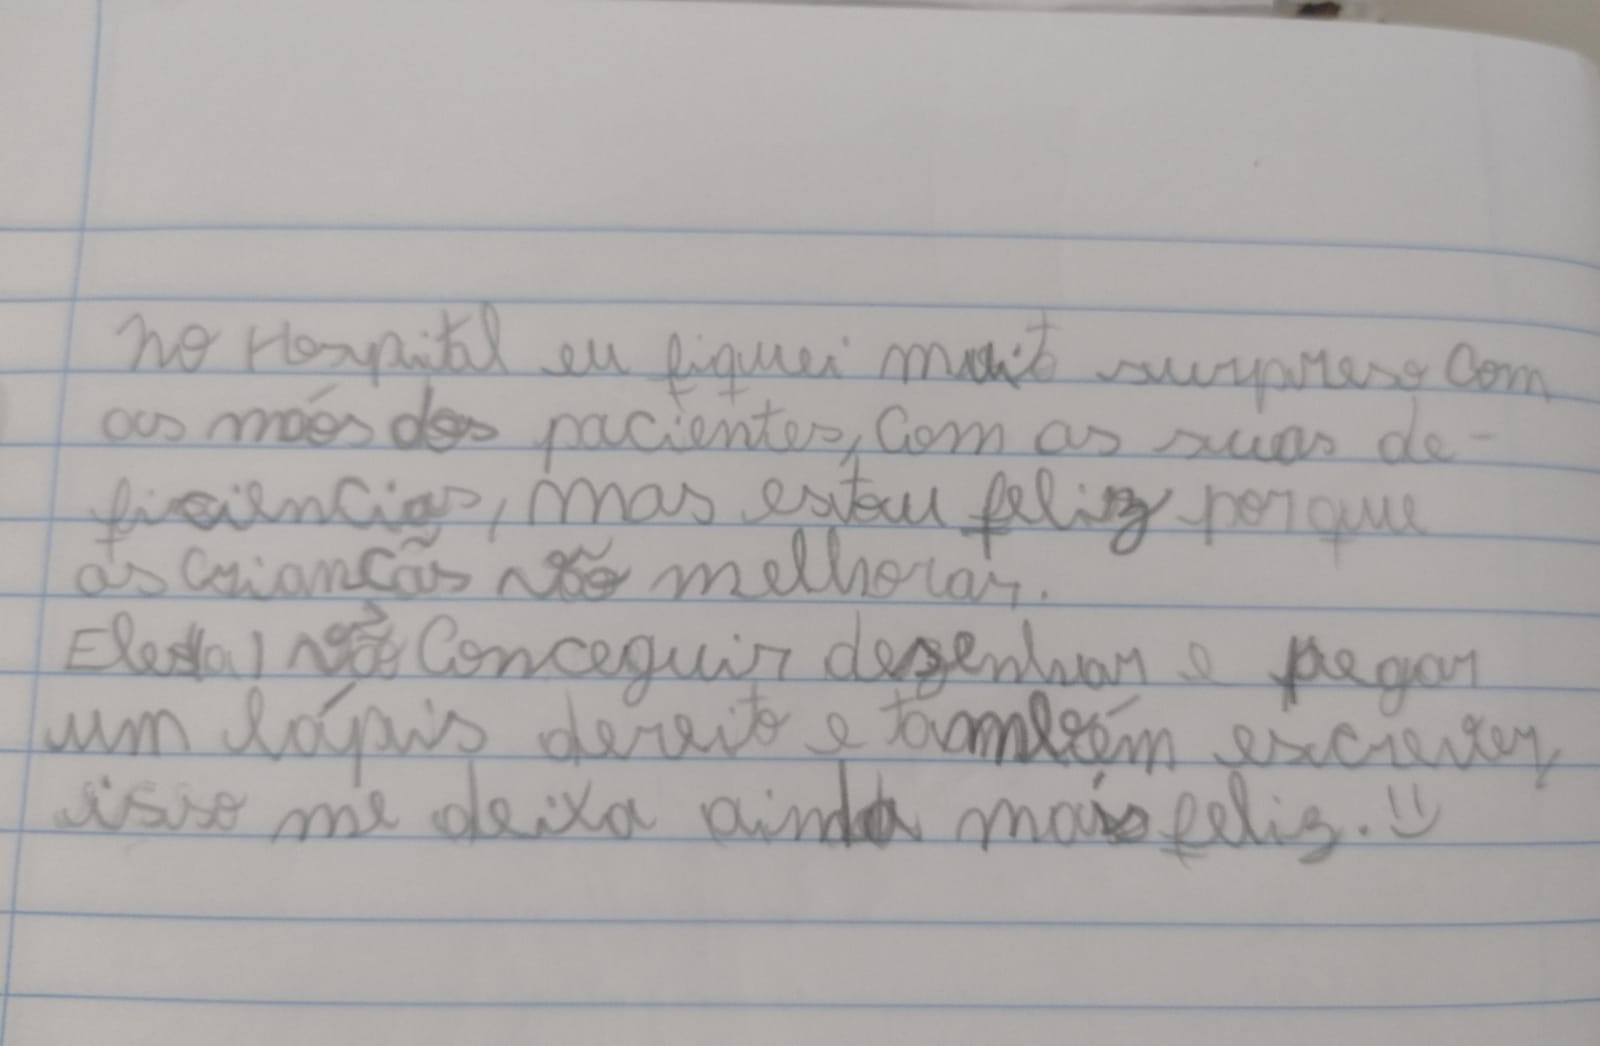 No Hospital eu fiquei muito surpreso com
as mãos dos pacientes, com as suas de-
ficiências, mas estou feliz porque
as criancãs vão melhorar.
Eles(a) vão conceguir desenhar e pegar
um lápis dereito e também escrever,
isso me deixa ainda mais feliz. :)